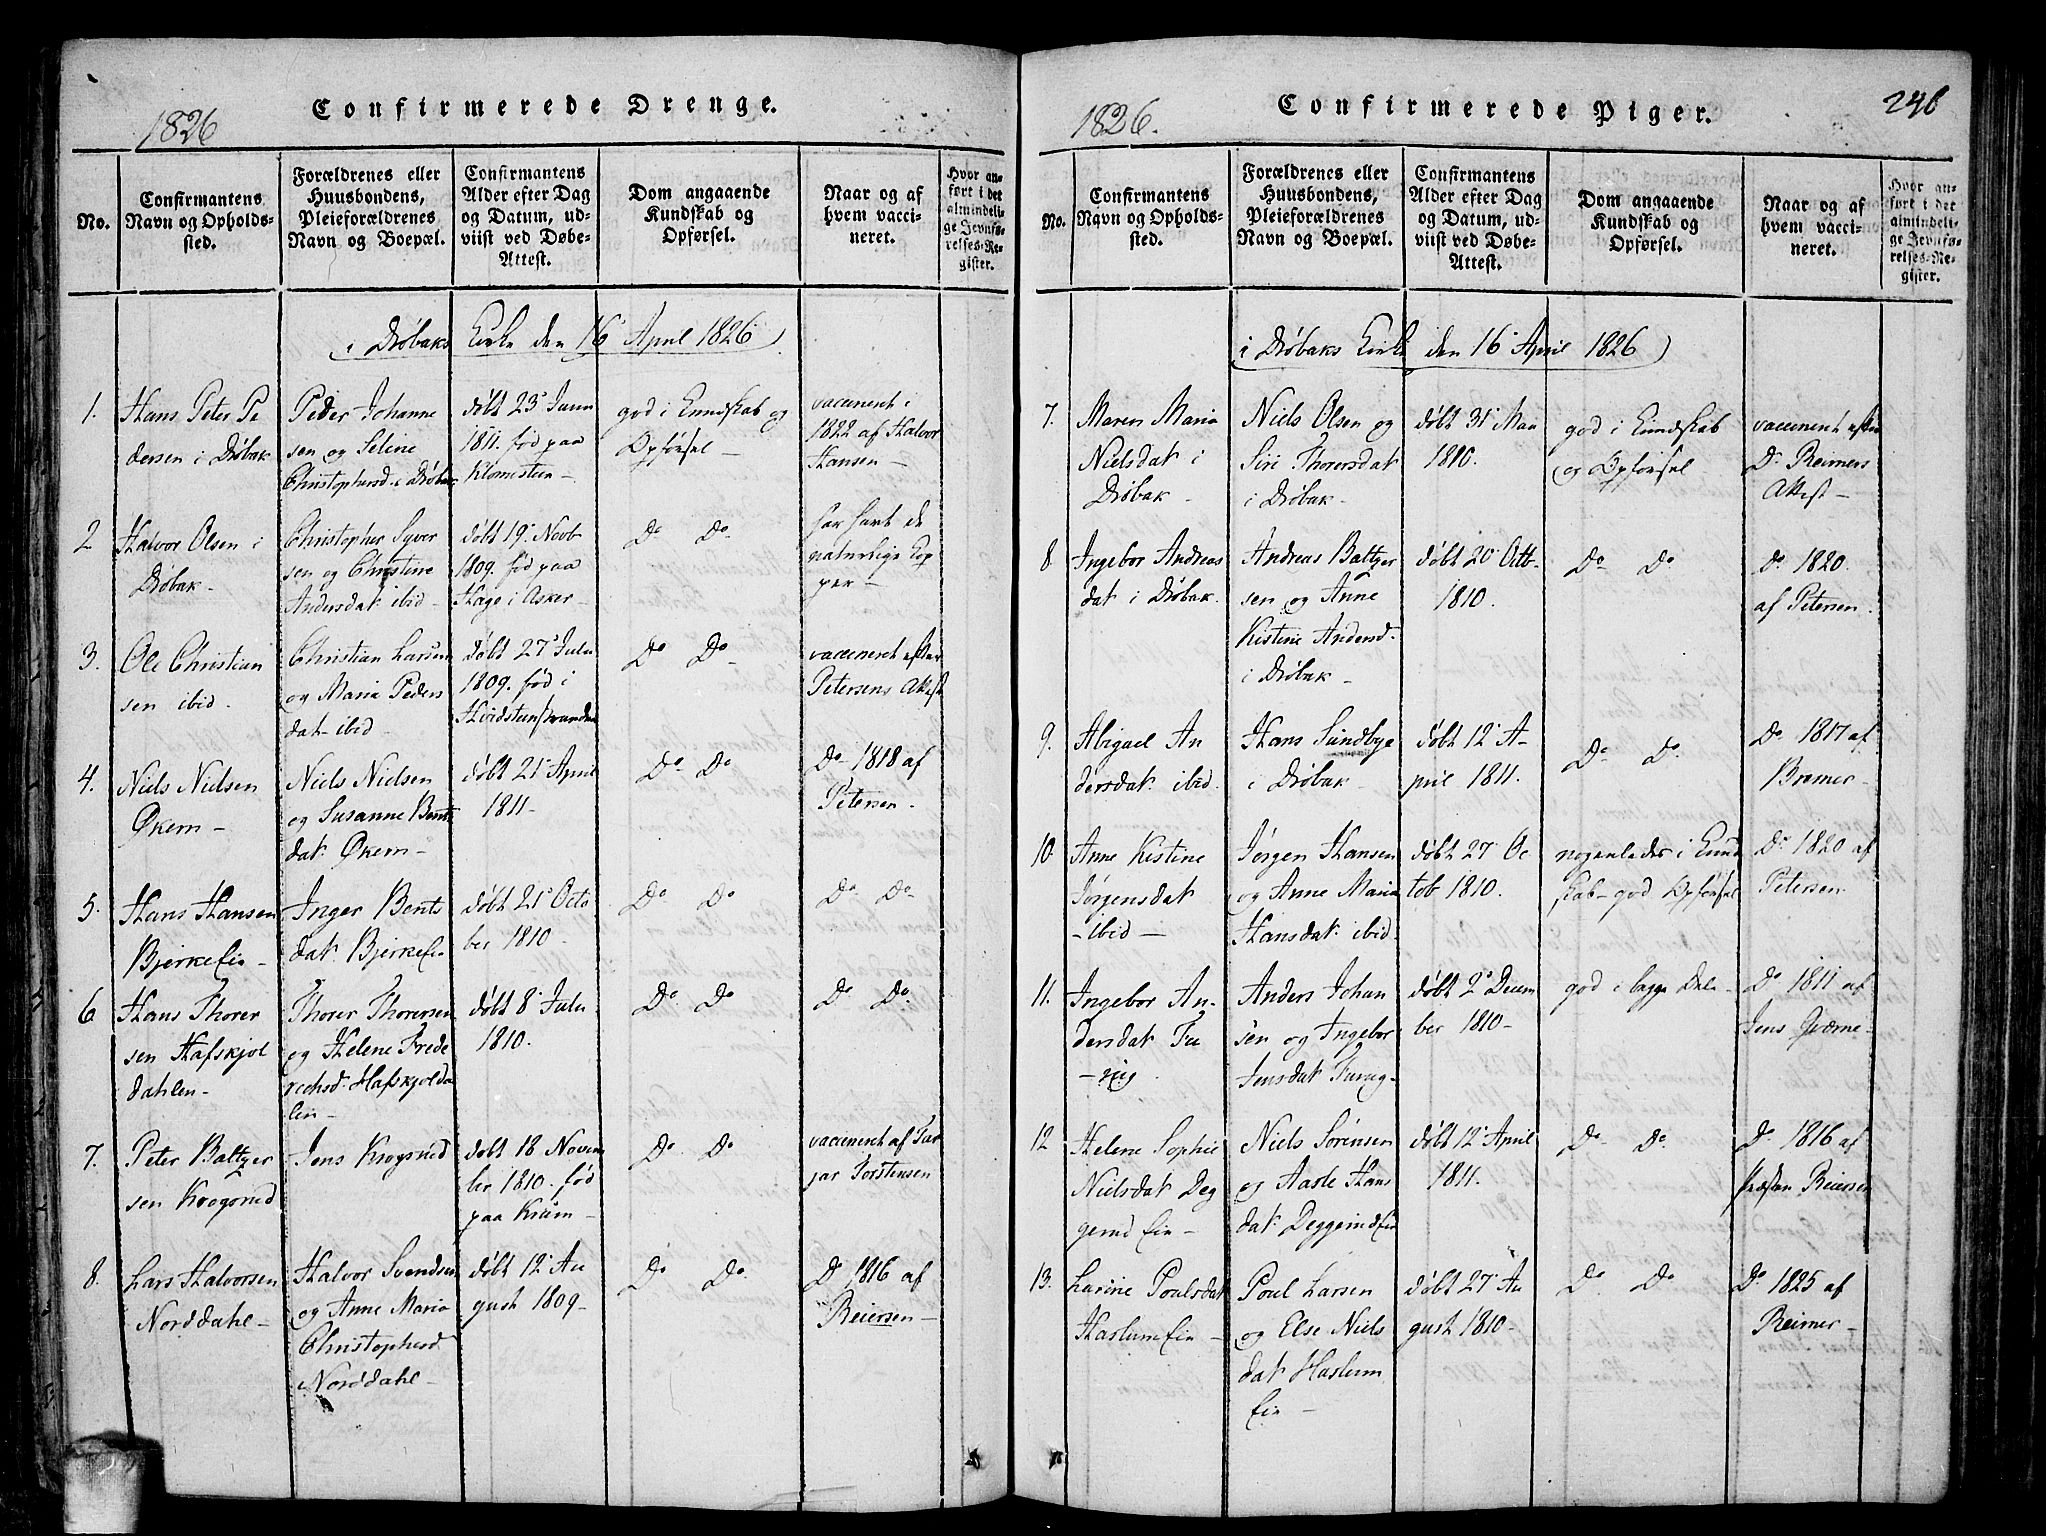 1826
Confirmerede Drenge.
No.
Confirmantens
Navn og Opholds-
sted.
Forældrenes eller
Huusbondens,
Pleieforældrenes
Navn og Boepæl.
Confirmantens
Alder efter Dag
og Datum, ud-
viist ved Døbe-
Attest.
Dom angaaende
Kundskab og
Opførsel.
Naar og af
hvem vacci-
neret.
Hvor an-
ført i det
almindeli-
ge Jevnfø-
relses-Re-
gister.
i Drøbaks Kirke den 16 April 1826
1.
Hans Peter Pe
dersen i Drøbak
Peder Johanne
sen og Seline
Christophersd. i Drøbak
døbt 23 Janu
1811. fød paa
Klomestein -
god i Kundskab og
Opførsel -
vaccineret i
1822 af Halvor
Hansen -
2
Halvor Olsen i
Drøbak -
Christopher Syver
sen og Christine
Andersdat ibid -
døbt 19 Novb
1809. fød paa
Hage i Asker -
Do Do
har havt de
naturlige Kop
per -
3.
Ole Christian
sen ibid.
Christian Larsen
og Maria Peders
dat - ibid -
døbt 27 Julii
1809. fød i
Hvidsteen
Do Do
vaccineret efter
Petersens Attest
4.
Niels Nielsen
Økern -
Niels Nielsen
og Susanne Bents
dat. Økern -
døbt 21 April
1811 -
Do Do
Do 1818 af
Petersen.
5.
Hans Hansen
Bjerkeeie -
Inger Bents
dat. Bjerkeeie
døbt 21 Octo
ber 1810 -
Do Do
Do Do
6
Hans Thorer
sen Hafskjol
dahlen -
Thorer Thorersen
og Helene Frede
richsd. Hafskjolda
len -
døbt 8 Julii
1810.
Do Do
Do Do
7.
Peter Baltzer
sen Krogsrud
Jens Krogsrud
døbt 18 Novem
ber 1810. fød
paa Krüm -
Do Do
vaccineret af
Torstensen
8.
Lars Halvorsen
Norddahl -
Halvor Svendsen
og Anne Maria
Christophersd
Norddahl -
døbt 12 Au
gust 1809 -
Do Do
Do 1816 af
Reiersen -
1826.
Confirmerede Piger.
246
No.
Confirmantens
Navn og Opholds-
sted.
Forældrenes eller
Huusbondens,
Pleieforældrenes
Navn og Boepæl.
Confirmantens
Alder efter Dag
og Datum, ud-
viist ved Døbe-
Attest.
Dom angaaende
Kundskab og
Opførsel.
Naar og af
hvem vacci-
neret.
Hvor an-
ført i det
almindeli-
ge Jevnfø-
relses-Re-
gister.
i Drøbaks Kirke den 16 April 1826
7.
Maren Maria
Nielsdat i
Drøbak -
Niels Olsen og
Siri Thorersdat
i Drøbak -
døbt 31 Mai
1810.
god i Kundskab
og Opførsel
vaccineret efter
Dr Reimers
Attest -
8
Ingebor Andreas
dat i Drøbak.
Andreas Baltzer
sen og Anne
Kistine Andersd -
i Drøbak -
døbt 20 Octb -
1810.
Do Do
Do 1820.
af Petersen.
9.
Abigael An
dersdat ibid.
Hans Sundbye
i Drøbak -
døbt 12 A-
pril 1811.
Do Do
Do 1817 af
Bremer -
10.
Anne Kistine
Jørgensdat
- ibid -
Jørgen Hansen
og Anne Maria
Hansdat ibid -
døbt 27 Oc
tob 1810.
nogenledes i Kund
skab - god Opførsel
Do 1820 af
Petersen -
11.
Ingebor An-
dersdat Fu
- rug.
Anders Johan
sen og Ingebor
Jensdat Furug -
døbt 2 Decem
ber 1810 -
god i begge Dele -
Do 1811 af
Jens Gjerne -
12
Helene Sophie
Nielsdat Deg
gerud Eie -
Niels Sörensen
og Aasle Hans
dat. Deggerudeie
døbt 12 April
1811.
Do Do
Do 1816 af
Præsten Reiersen
13.
Larine Poulsdat
Haslumeie -
Poul Larsen
og Else Niels
dat Haslum
Eie -
døbt 27 Au
gust 1810 -
Do Do
Do 1825 af
Reimer -